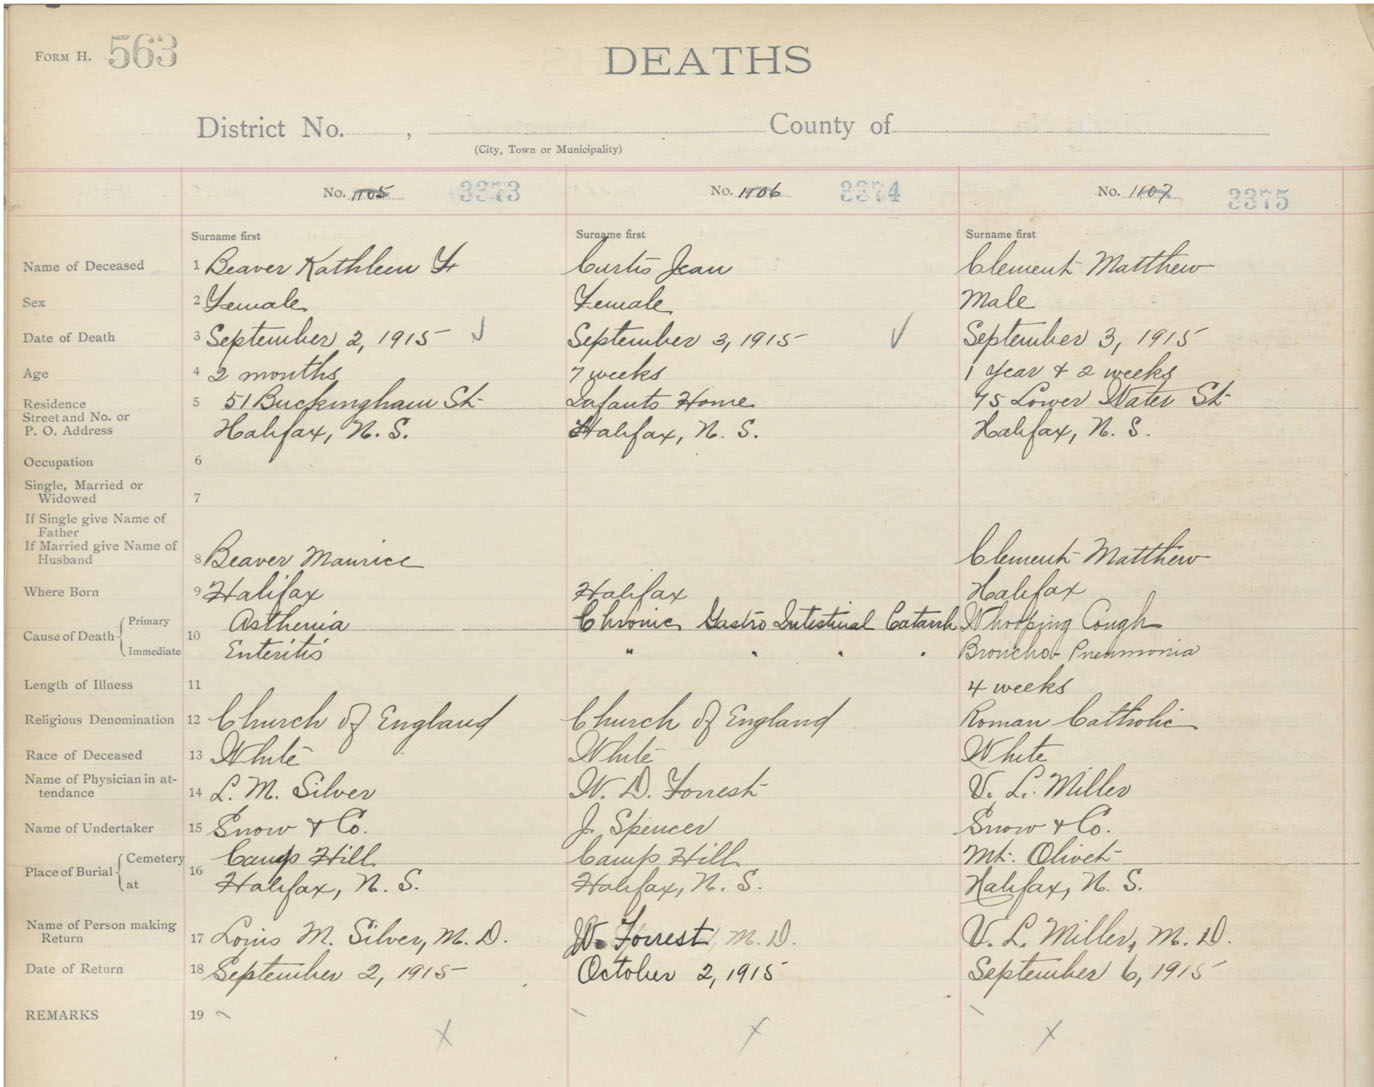 FORM H. 563
DEATHS
District No. , County of
(City, Town or Municipality)
No. 1105 3373 No. 1106 3374 No. 1107 3375
Surname first Surname first Surname first
Name of Deceased 1 Beaver Kathleen F Curtis Jean Clement Matthew
Sex 2 Female Female Male
Date of Death 3 September 2, 1915 September 3, 1915 September 3, 1915
Age 4 2 months 7 weeks 1 year & 2 weeks
Residence 5 51 Buckingham St Infants Home 75 Lower Water St
Street and No. or
P. O. Address Halifax, N. S. Halifax, N. S. Halifax, N. S.
Occupation 6
Single, Married or
Widowed 7
If Single give Name of
Father
If Married give Name of
Husband 8 Beaver Maurice Clement Matthew
Where Born 9 Halifax Halifax Halifax
Cause of Death Primary 10 Asthenia Chronic Gastro Intestinal Catarrh Whooping Cough
Immediate Enteritis " " " " Broncho-Pneumonia
Length of Illness 11 4 weeks
Religious Denomination 12 Church of England Church of England Roman Catholic
Race of Deceased 13 White White White
Name of Physician in at-
tendance 14 L. M. Silver W. D. Forrest V. L. Miller
Name of Undertaker 15 Snow & Co. J. Spencer Snow & Co.
Place of Burial Cemetery 16 Camp Hill Camp Hill Mt. Olivet
at Halifax, N. S. Halifax, N. S. Halifax, N. S.
Name of Person making
Return 17 Louis M. Silver, M. D. W. Forrest, M. D. V. L. Miller, M. D.
Date of Return 18 September 2, 1915 October 2, 1915 September 6, 1915
REMARKS 19